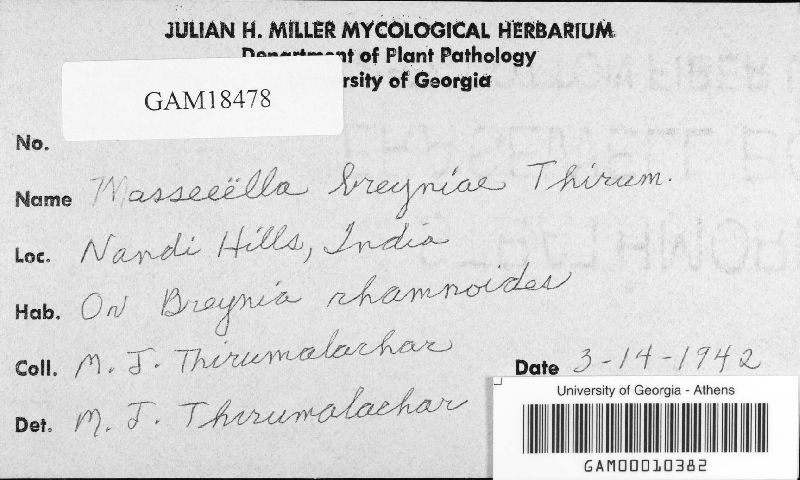 JULIAN H. MILLER MYCOLOGICAL HERBARIUM
Department of Plant Pathology
rsity of Georgia
GAM18478
No.
Name Masseeëlla breyniae Thirum.
Loc. Nandi Hills, India
Hab. On Breynia rhamnoides
Coll. M. J. Thirumalachar Date 3-14-1942
Det. M. J. Thirumalachar
University of Georgia - Athens
GAM00010382